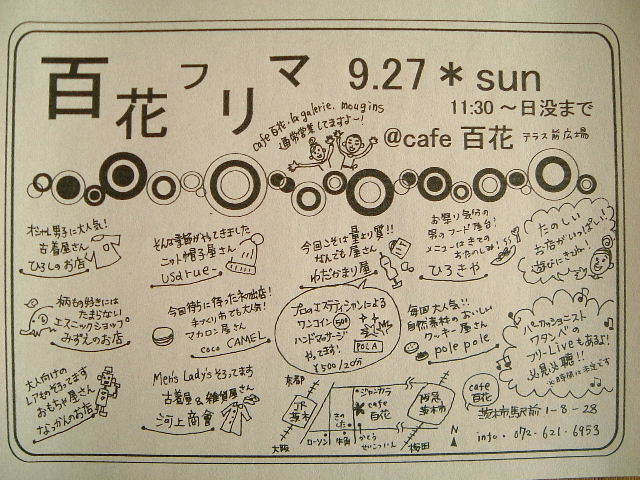 百花フリマ 9.27＊sun
11:30 〜日没まで
@cafe 百花 テラス前広場
cafe 百花・la galerie. mougins
通常営業してますよ〜!
オシャレ男子に大人気!
古着屋さん
ひろしのお店
そんな季節がやってきました
ニット帽子屋さん
usarue
今回こそは量より質!!
なんでも屋さん
わだかまり屋
お祭り気分の
男のフード屋台!
メニューはきての
おたのしみ!
ひろきや
たのしい
お店がいっぱい!
遊びにきてね!
柄もの好きには
たまらない
エスニックショップ
みずえのお店
今回待ちに待った初出店!
手づくり市でも大人気!
マカロン屋さん
coco CAMEL
プロのエステティシャンによる
ワンコイン 500
ハンドマッサージ
やってます!
POLA
¥500/20分
毎回大人気!!
自然素材のおいしい
クッキー屋さん
pole pole
パーカッショニスト
ワタンベの
フリーLiveもあるよ!
必見必聴!!
※時間は未定です
大人向けの
レアものそろってます
おもちゃ屋さん
なっかんのお店
Men's Lady'sそろってます
古着&雑貨屋さん
河上商會
京都
JR茨木
大阪
ジャンカラ
cafe百花
ローソン
牛角
阪急茨木市
梅田
N
cafe百花
茨木市駅前1-8-28
info. 072-621-6953